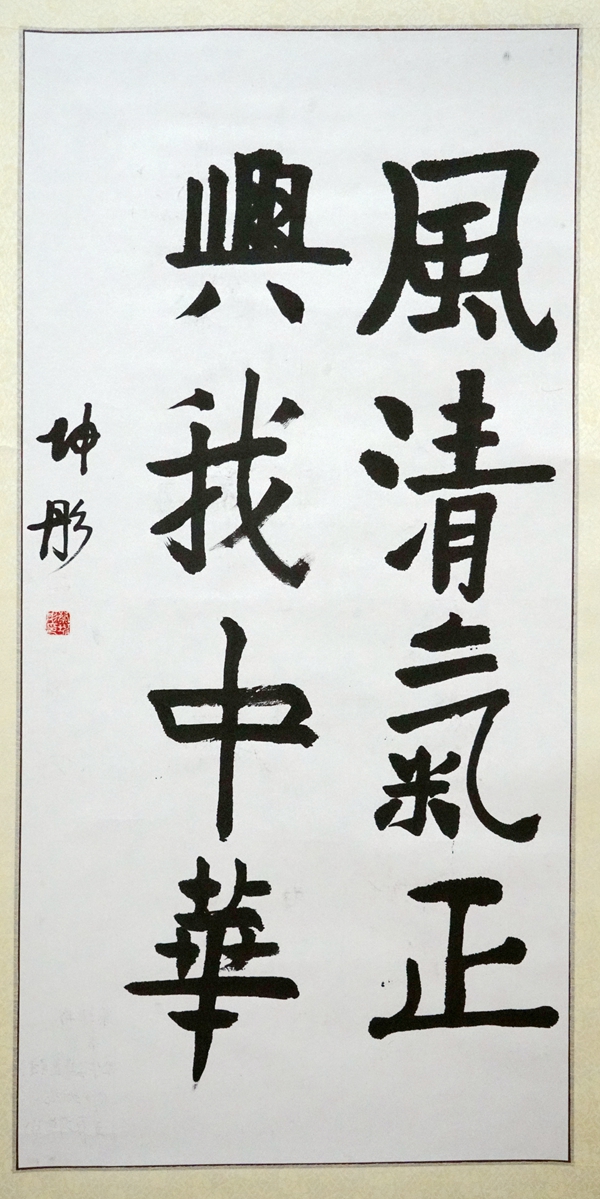 風清氣正
興我中華
坤彤